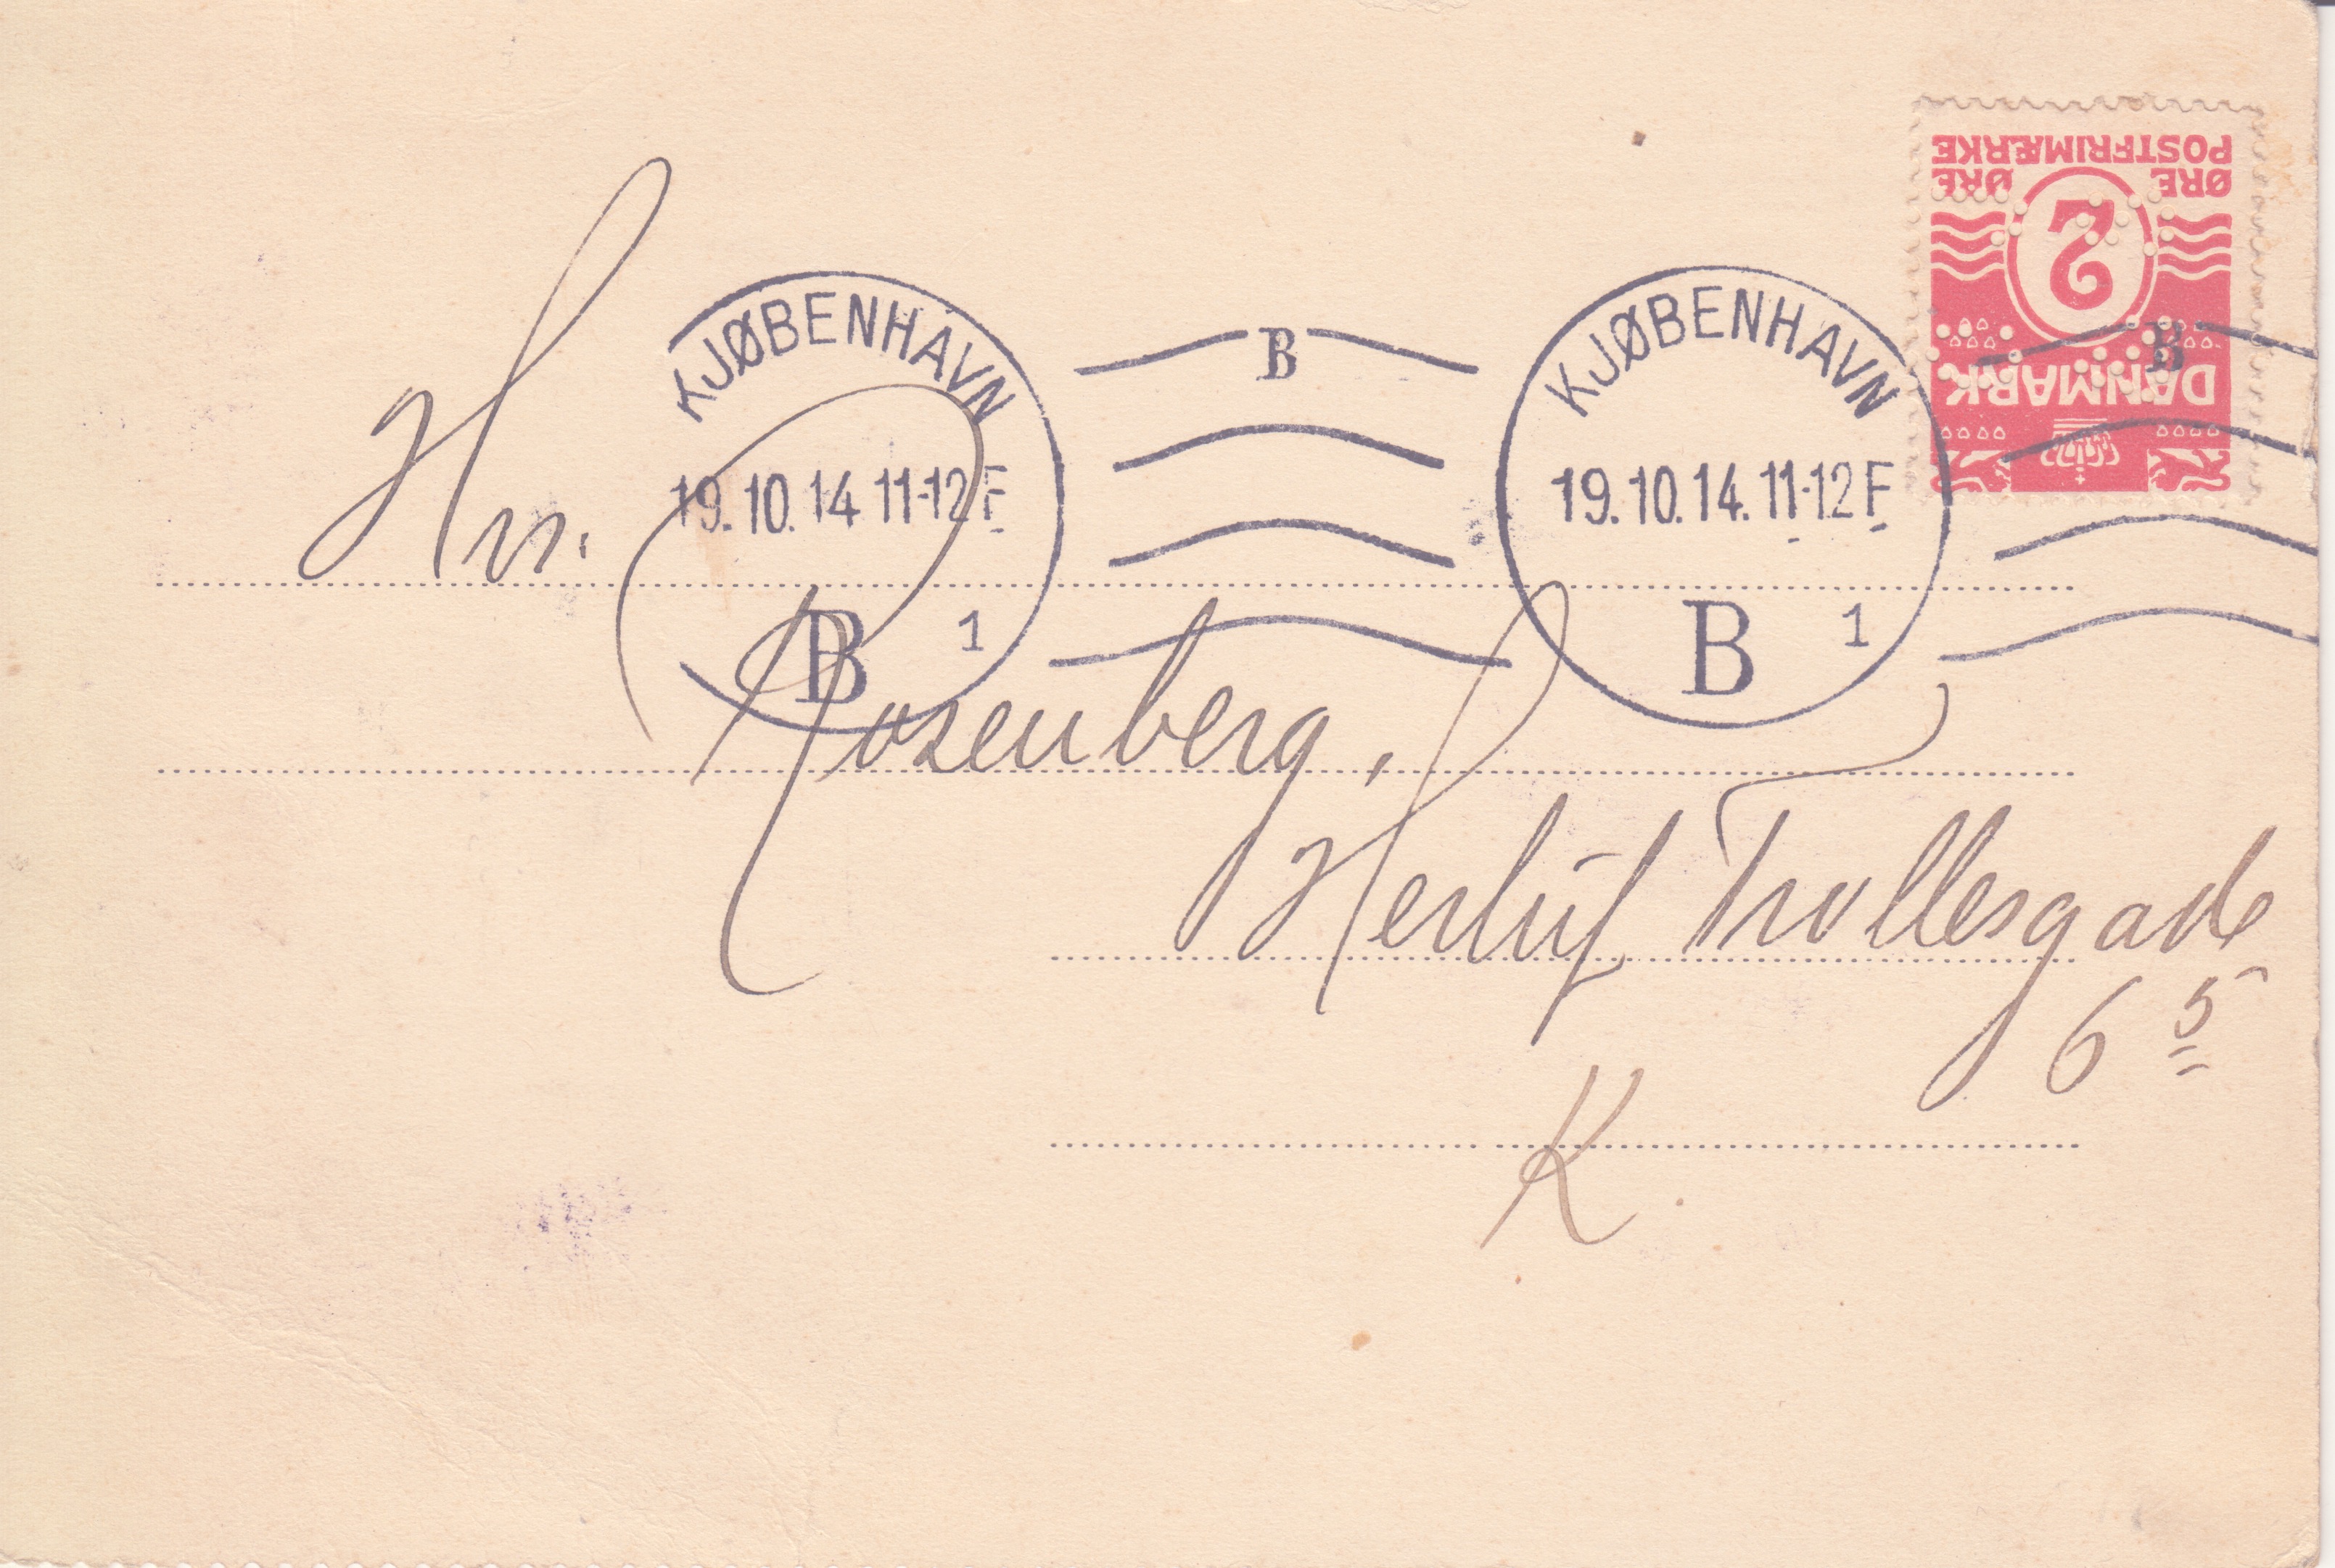 KJØBENHAVN
19.10.14 11-12 F
B 1
B
KJØBENHAVN
19.10.14. 11-12 F
B 1
B
DANMARK
2
ØRE ØRE
POSTFRIMÆRKE
Hr.
Rosenberg,
Herluf Trollesgade
6 5
K.